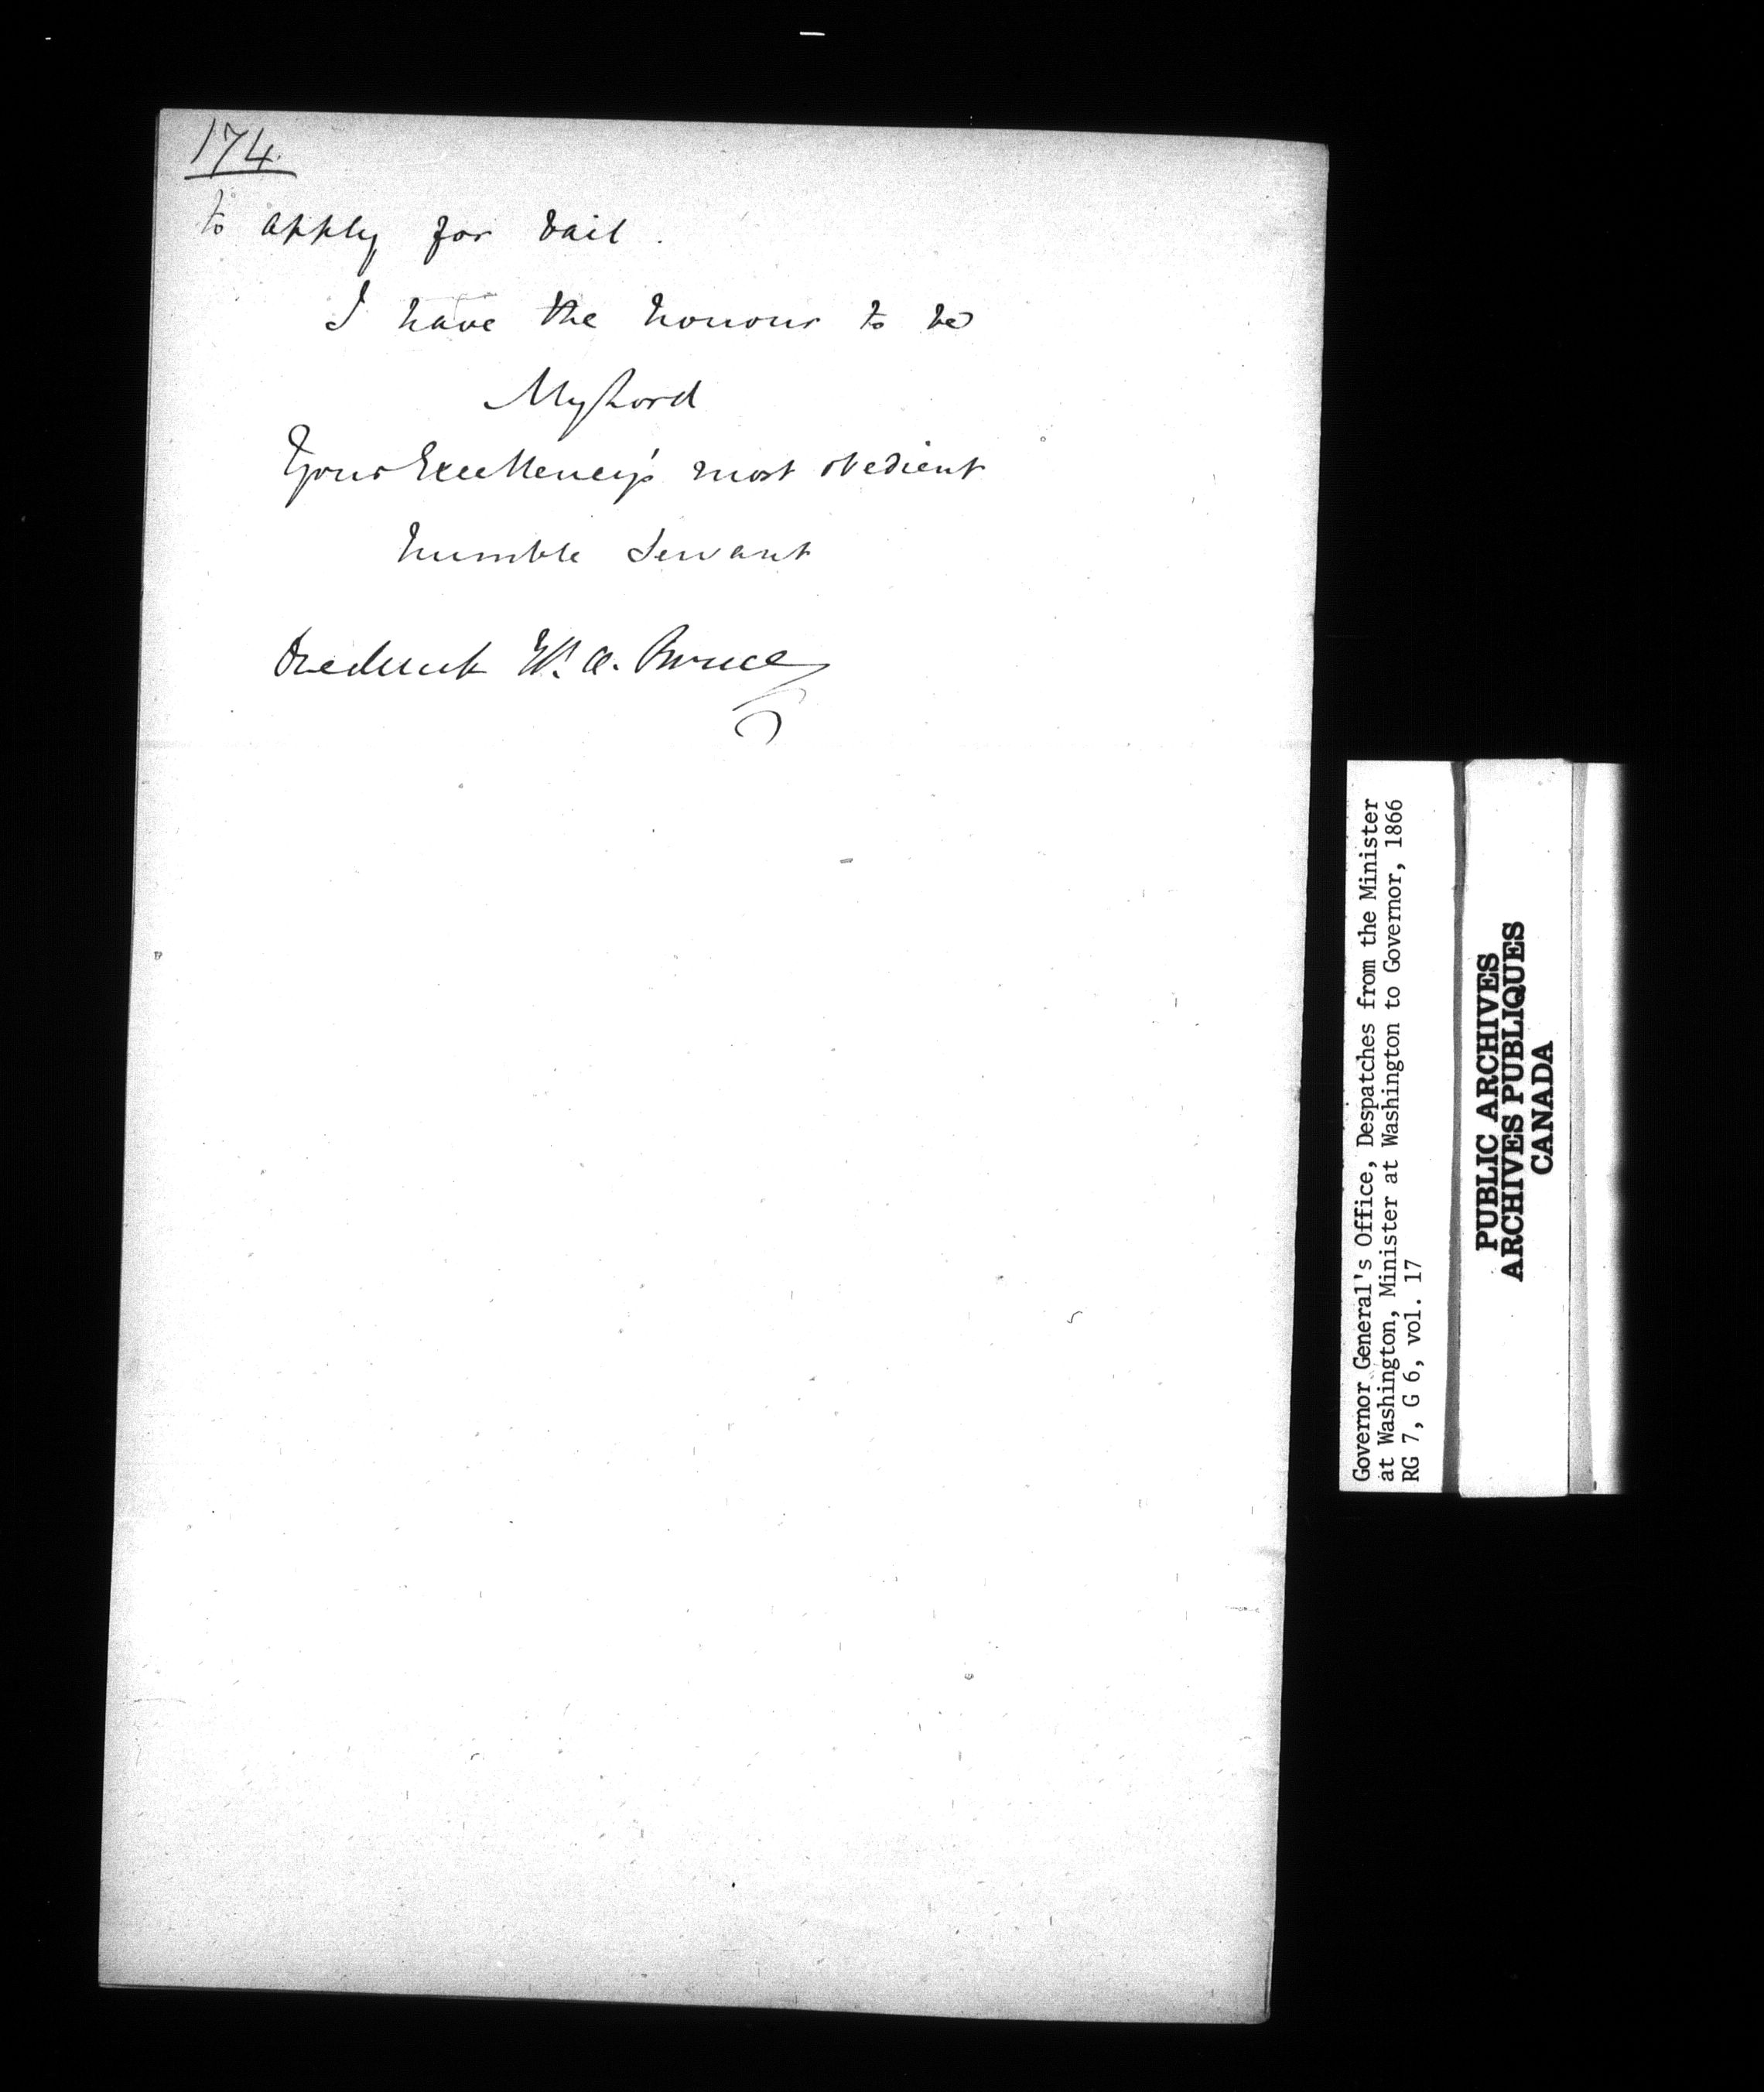 174.
to apply for bail.
I have the honour to be
My Lord
Your Excellency's most obedient
humble Servant
Frederick W. A. Bruce
Governor General's Office, Despatches from the Minister
at Washington, Minister at Washington to Governor, 1866
RG 7, G 6, vol. 17
PUBLIC ARCHIVES
ARCHIVES PUBLIQUES
CANADA